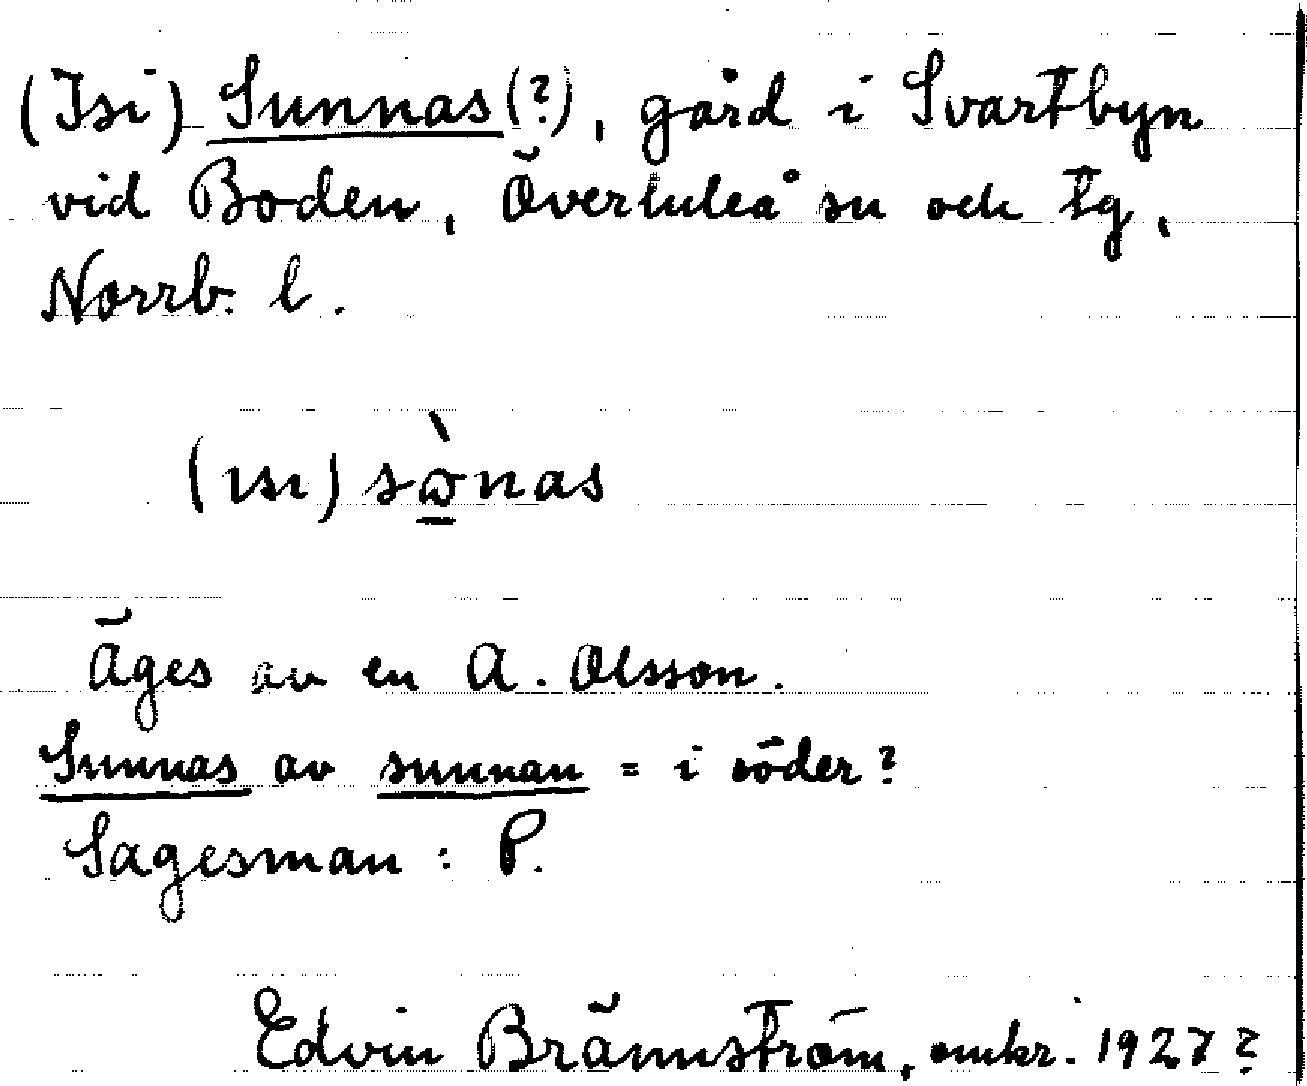 (Isi) Sunnas(?), gård i Svartbyn
vid Boden, Överluleå sn och tg,
Norrb. l.
(ısı) sὼnas
Äges av en A. Olsson.
Sunnas av sunnan = i söder?
Sagesman: P.
Edvin Brännström, omkr. 1927?